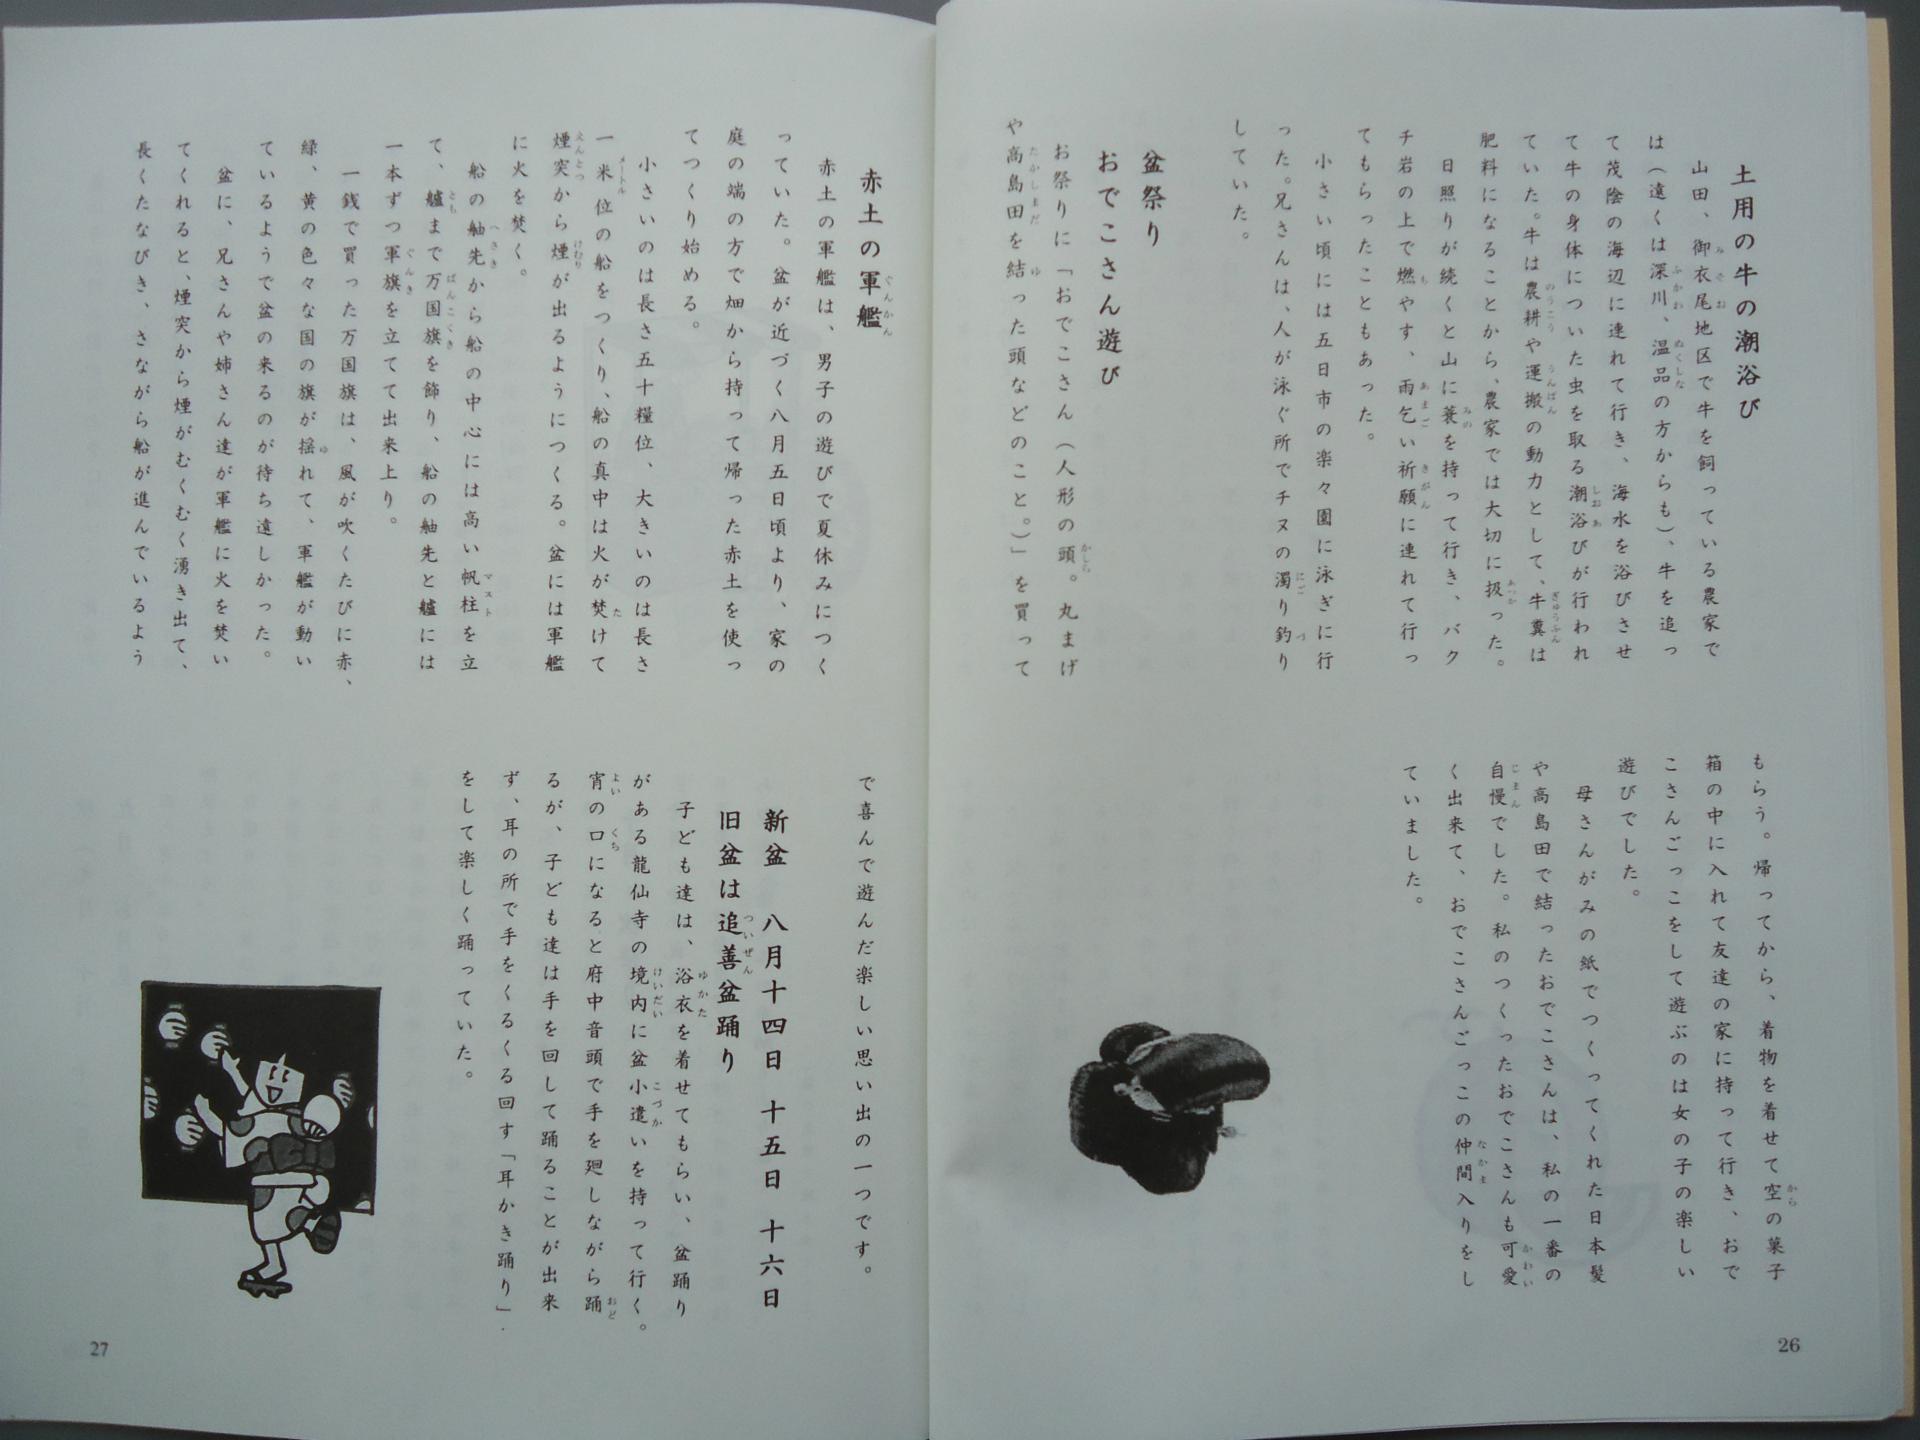 土用の牛の潮浴び
山田、御衣尾地区で牛を飼っている農家で
は（遠くは深川、温品の方からも）、牛を追っ
て茂陰の海辺に連れて行き、海水を浴びさせ
て牛の身体についた虫を取る潮浴びが行われ
ていた。牛は農耕や運搬の動力として、牛糞は
肥料になることから、農家では大切に扱った。
日照りが続くと山に蓑を持って行き、バク
チ岩の上で燃やす、雨乞い祈願に連れて行っ
てもらったこともあった。
小さい頃には五日市の楽々園に泳ぎに行
った。兄さんは、人が泳ぐ所でチヌの濁り釣り
していた。
盆祭り
おでこさん遊び
お祭りに「おでこさん（人形の頭。丸まげ
や高島田を結った頭などのこと。）」を買って
もらう。帰ってから、着物を着せて空の菓子
箱の中に入れて友達の家に持って行き、おで
こさんごっこをして遊ぶのは女の子の楽しい
遊びでした。
母さんがみの紙でつくってくれた日本髪
や高島田で結ったおでこさんは、私の一番の
自慢でした。私のつくったおでこさんも可愛
く出来て、おでこさんごっこの仲間入りをし
ていました。
26
赤土の軍艦
赤土の軍艦は、男子の遊びで夏休みにつく
っていた。盆が近づく八月五日頃より、家の
庭の端の方で畑から持って帰った赤土を使っ
てつくり始める。
小さいのは長さ五十糎位、大きいのは長さ
一米位の船をつくり、船の真中は火が焚けて
煙突から煙が出るようにつくる。盆には軍艦
に火を焚く。
船の舳先から船の中心には高い帆柱を立
て、艫まで万国旗を飾り、船の舳先と艫には
一本ずつ軍旗を立てて出来上り。
一銭で買った万国旗は、風が吹くたびに赤、
緑、黄の色々な国の旗が揺れて、軍艦が動い
ているようで盆の来るのが待ち遠しかった。
盆に、兄さんや姉さん達が軍艦に火を焚い
てくれると、煙突から煙がむくむく湧き出て、
長くたなびき、さながら船が進んでいるよう
で喜んで遊んだ楽しい思い出の一つです。
新盆　八月十四日　十五日　十六日
旧盆は追善盆踊り
子ども達は、浴衣を着せてもらい、盆踊り
がある龍仙寺の境内に盆小遣いを持って行く。
宵の口になると府中音頭で手を廻しながら踊
るが、子ども達は手を回して踊ることが出来
ず、耳の所で手をくるくる回す「耳かき踊り」
をして楽しく踊っていた。
27